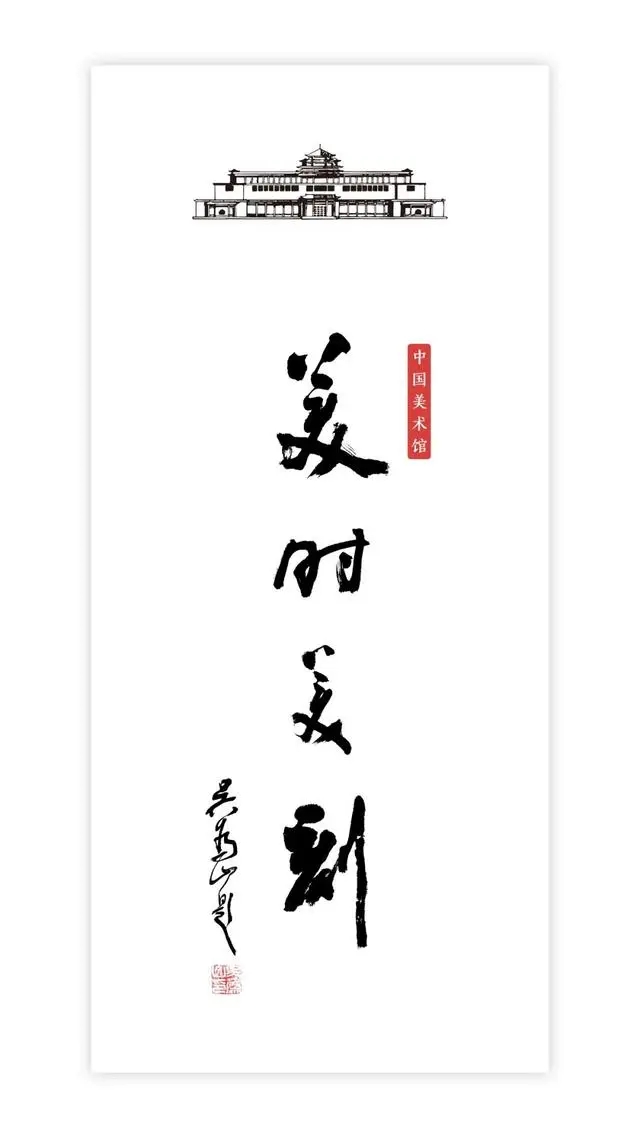 中国美术馆
美时美刻
吴为山题